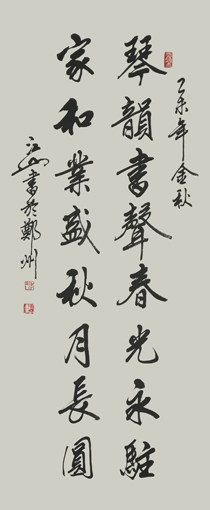 乙未年金秋
琴韻書聲春光永駐
家和業盛秋月長圓
江山書於鄭州